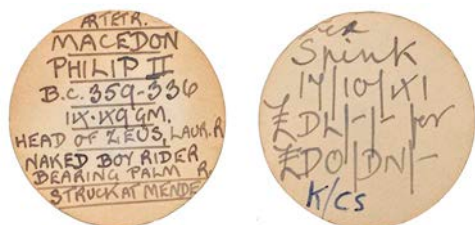 AR TETR.
MACEDON
PHILIP II
B.C. 359-336
1X·X9 GM.
HEAD OF ZEUS, LAUR. R.
NAKED BOY RIDER
BEARING PALM R.
STRUCK AT MENDE
Spink
14/10/X1
£DL/-/- for
£DO/DN/-
K/CS